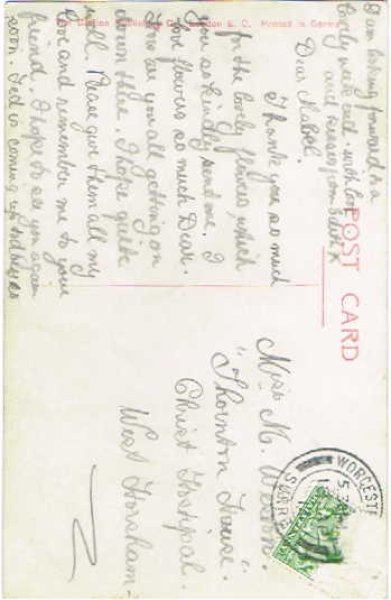 I am looking forward to a
lovely week end. with love
and kisses from
Dear Mabel.
Thank you so much
for the lovely flowers, which
you so kindly sent me. I
love flowers so much Dear.
How are you all getting on
down there. I hope quite
well. Please give them all my
love and remember me to your
friend. I hope to see you again
soon. Ted is coming up
London E.C. Printed in
POST CARD
Miss M.
"Thornton House".
Christ Hospital.
West Horsham
WORCESTER
5.30